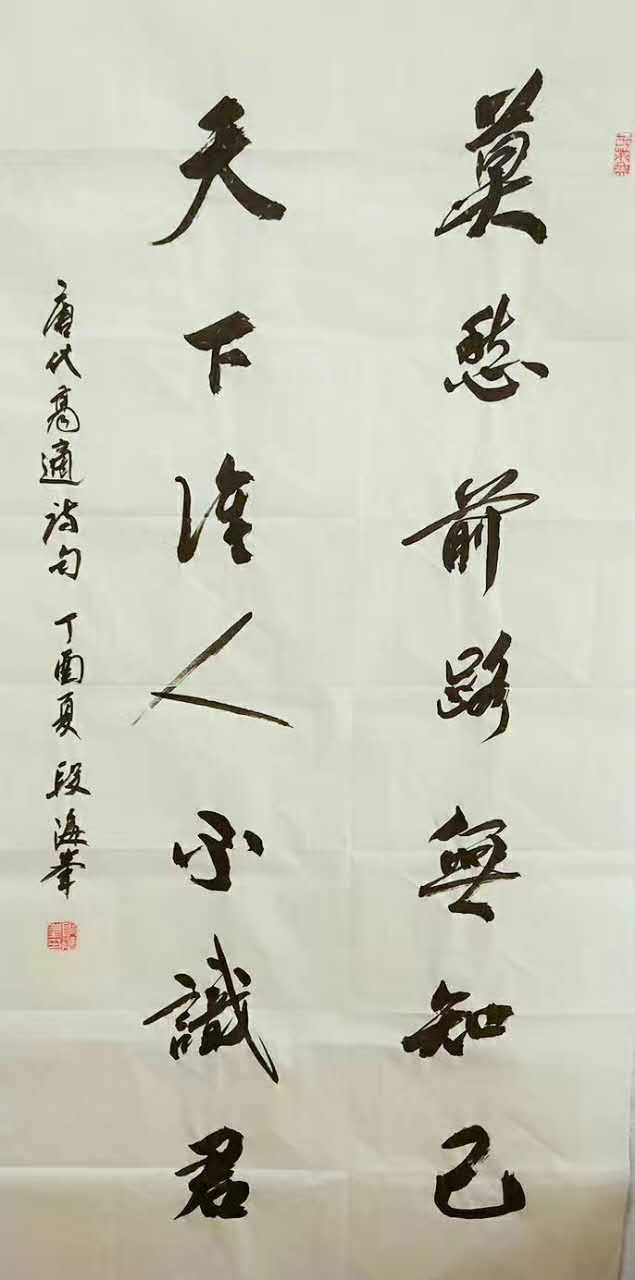 莫愁前路無知己
天下誰人不識君
唐代高適詩句 丁酉夏 段海峯